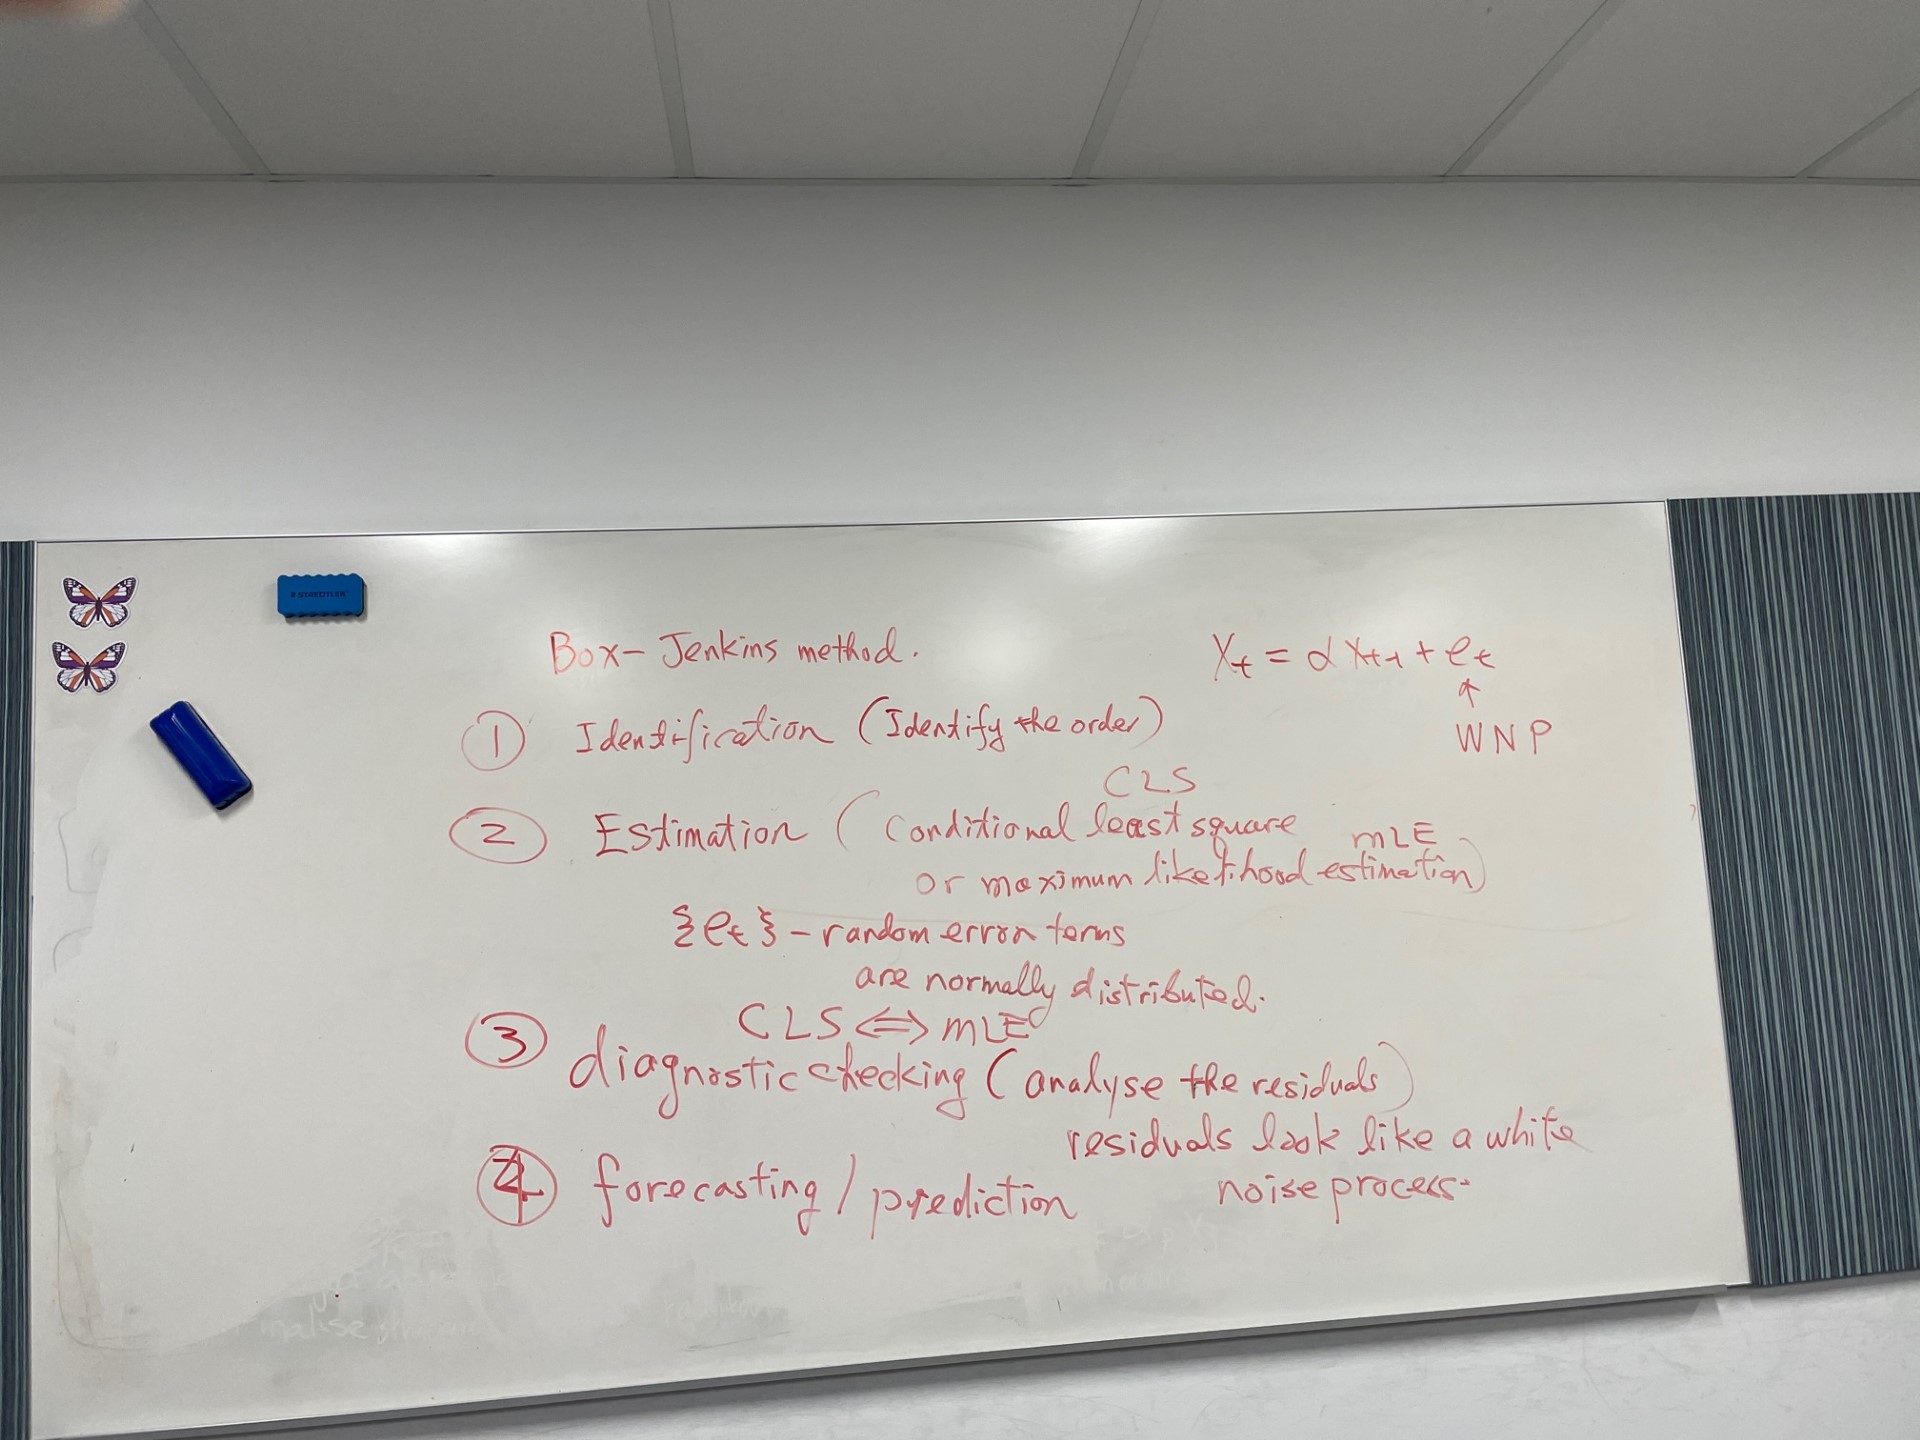 STAEDTLER
Box-Jenkins method.
Xt = αXt-1 + et
WNP
① Identification (Identify the order)
CLS
② Estimation (Conditional least square
MLE
or maximum likelihood estimation)
{et} - random error terms
are normally distributed.
CLS ⇔ MLE
③ diagnostic checking (analyse the residuals)
residuals look like a white
noise process.
④ forecasting / prediction